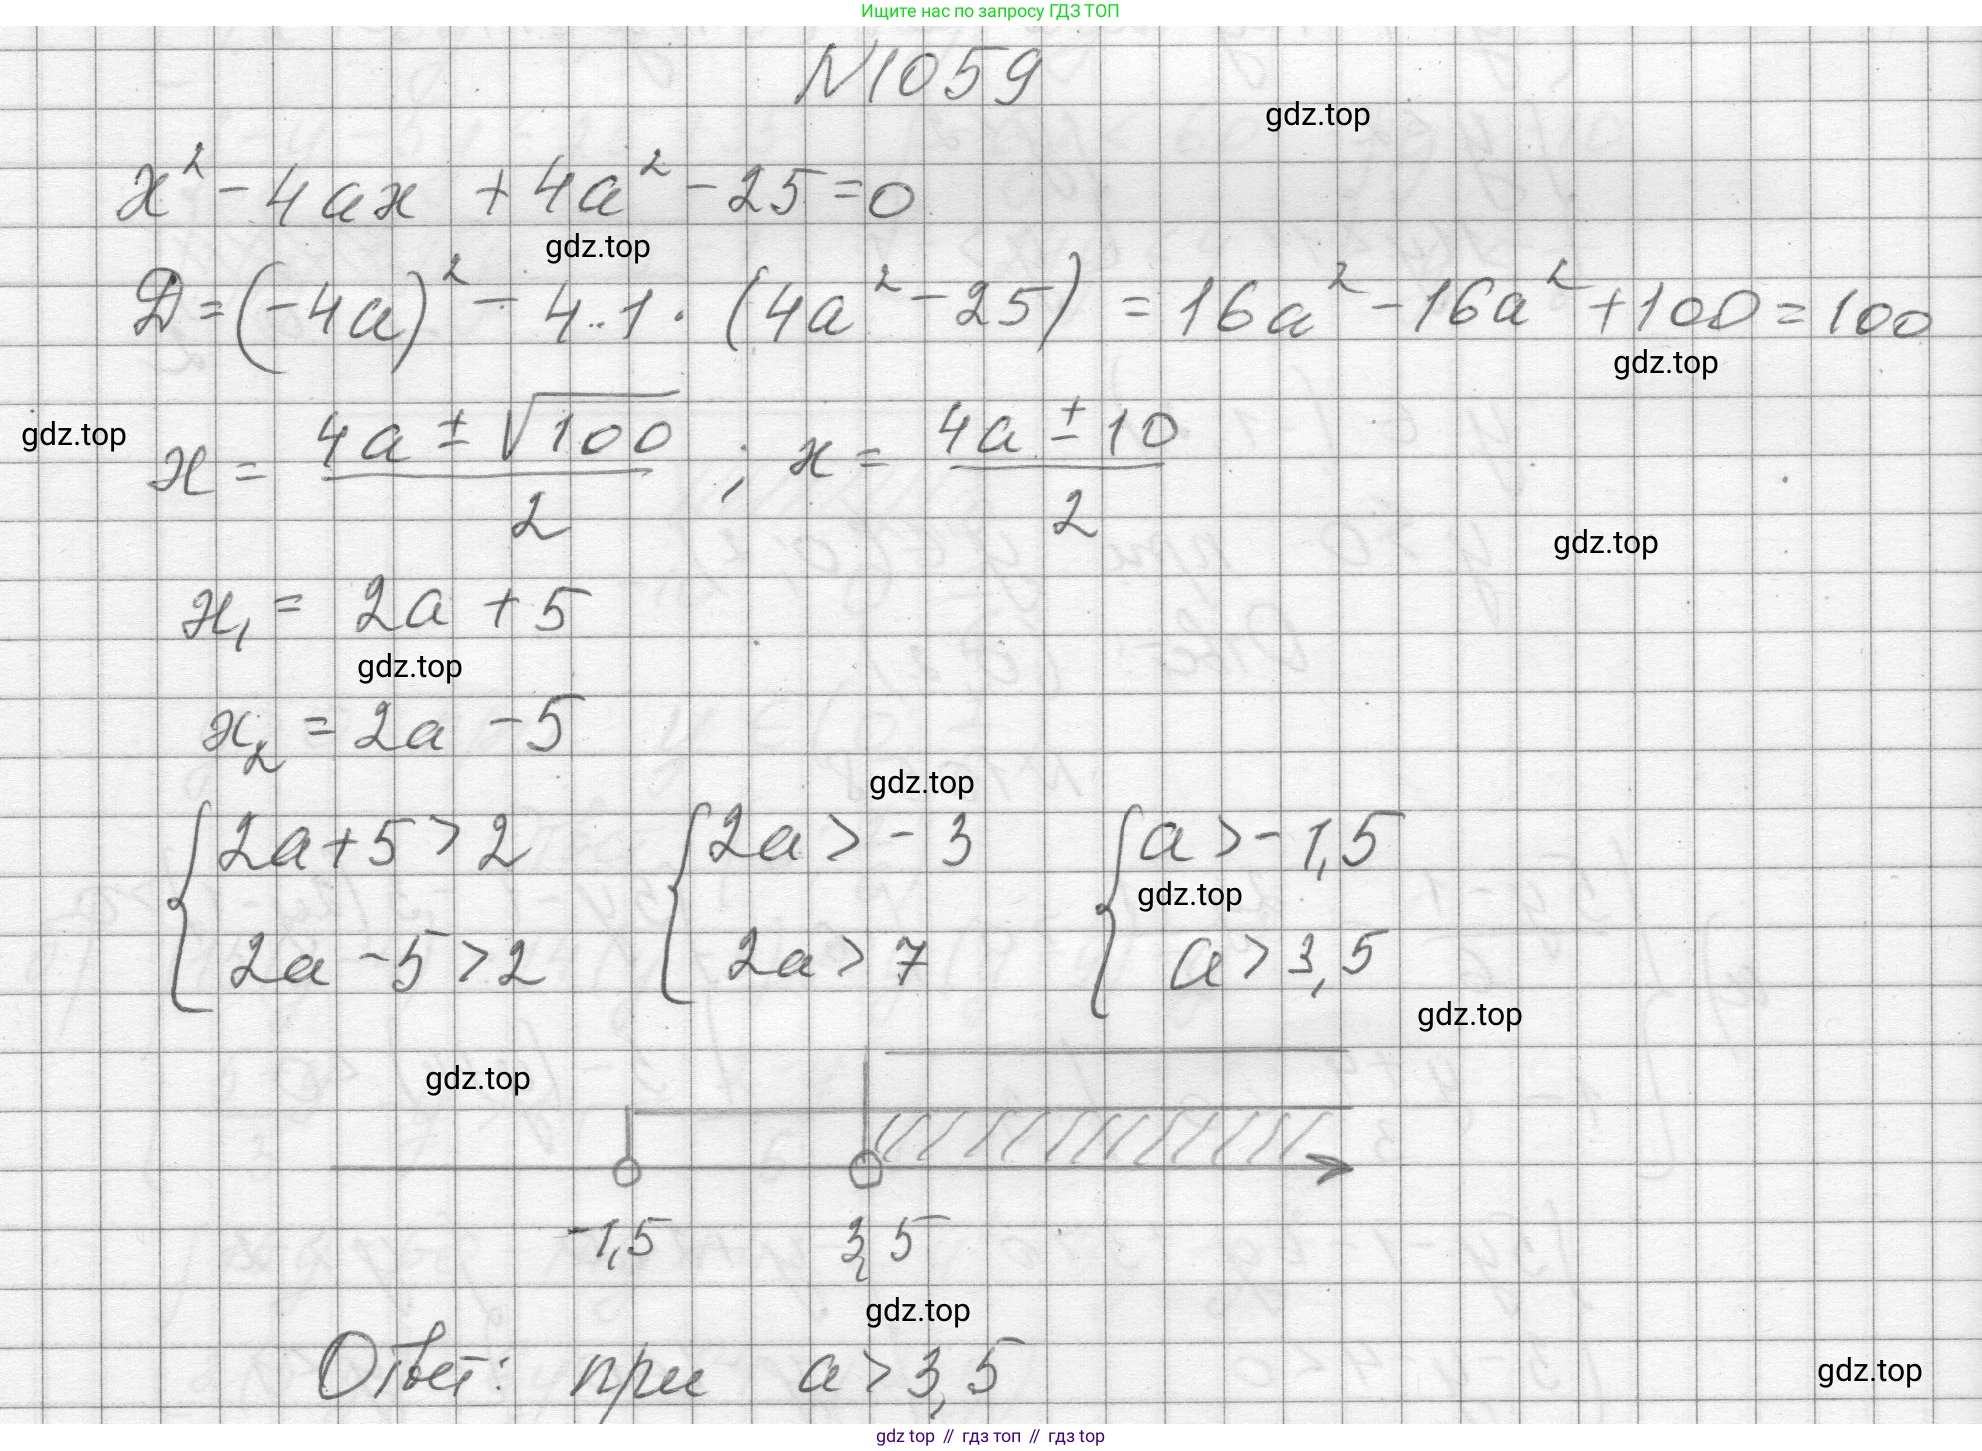 Ищите нас по запросу ГДЗ ТОП
N1059
gdz.top
x² - 4ax + 4a² - 25 = 0
gdz.top
D = (-4a)² - 4·1·(4a² - 25) = 16a² - 16a² + 100 = 100
gdz.top
gdz.top
x = (4a ± √100)/2 ; x = (4a ± 10)/2
gdz.top
x₁ = 2a + 5
gdz.top
x₂ = 2a - 5
gdz.top
{ 2a + 5 > 2 { 2a > -3 { a > -1,5
gdz.top
2a - 5 > 2 2a > 7 a > 3,5
gdz.top
gdz.top
-1,5 3,5
gdz.top
Ответ: при a > 3,5
gdz.top
gdz top // гдз топ // гдз top